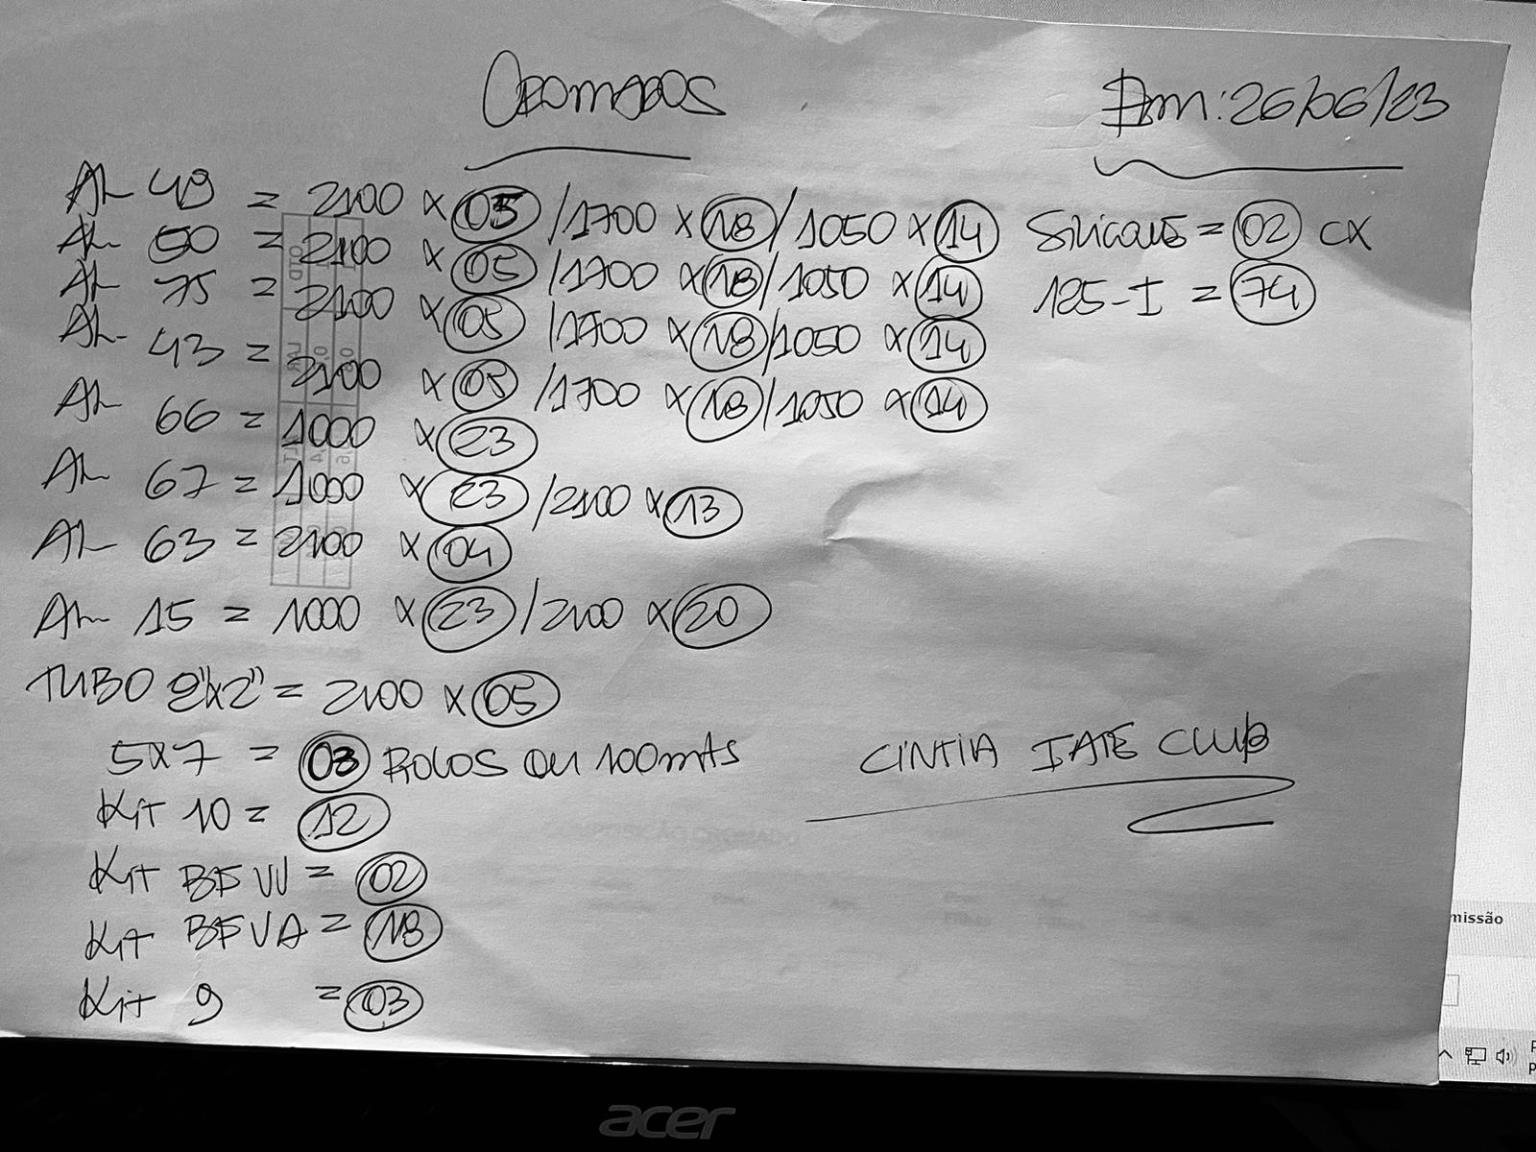 CROMADOS
Em: 26/06/23
AL 49 = 2100 x 05 / 1700 x 18 / 1050 x 14
AL 50 = 2100 x 05 / 1700 x 18 / 1050 x 14
AL 75 = 2100 x 05 / 1700 x 18 / 1050 x 14
AL 43 = 2100 x 05 / 1700 x 18 / 1050 x 14
AL 66 = 1000 x 23
AL 67 = 1000 x 23 / 2100 x 13
AL 63 = 2100 x 04
AL 15 = 1000 x 23 / 2100 x 20
TUBO 2"x2" = 2100 x 05
5x7 = 03 ROLOS OU 100mts
Kit 10 = 12
Kit BF VV = 02
Kit BF VA = 18
Kit 9 = 03
Silicone = 02 CX
125-I = 74
CINTIA IATE CLUB
missão
acer